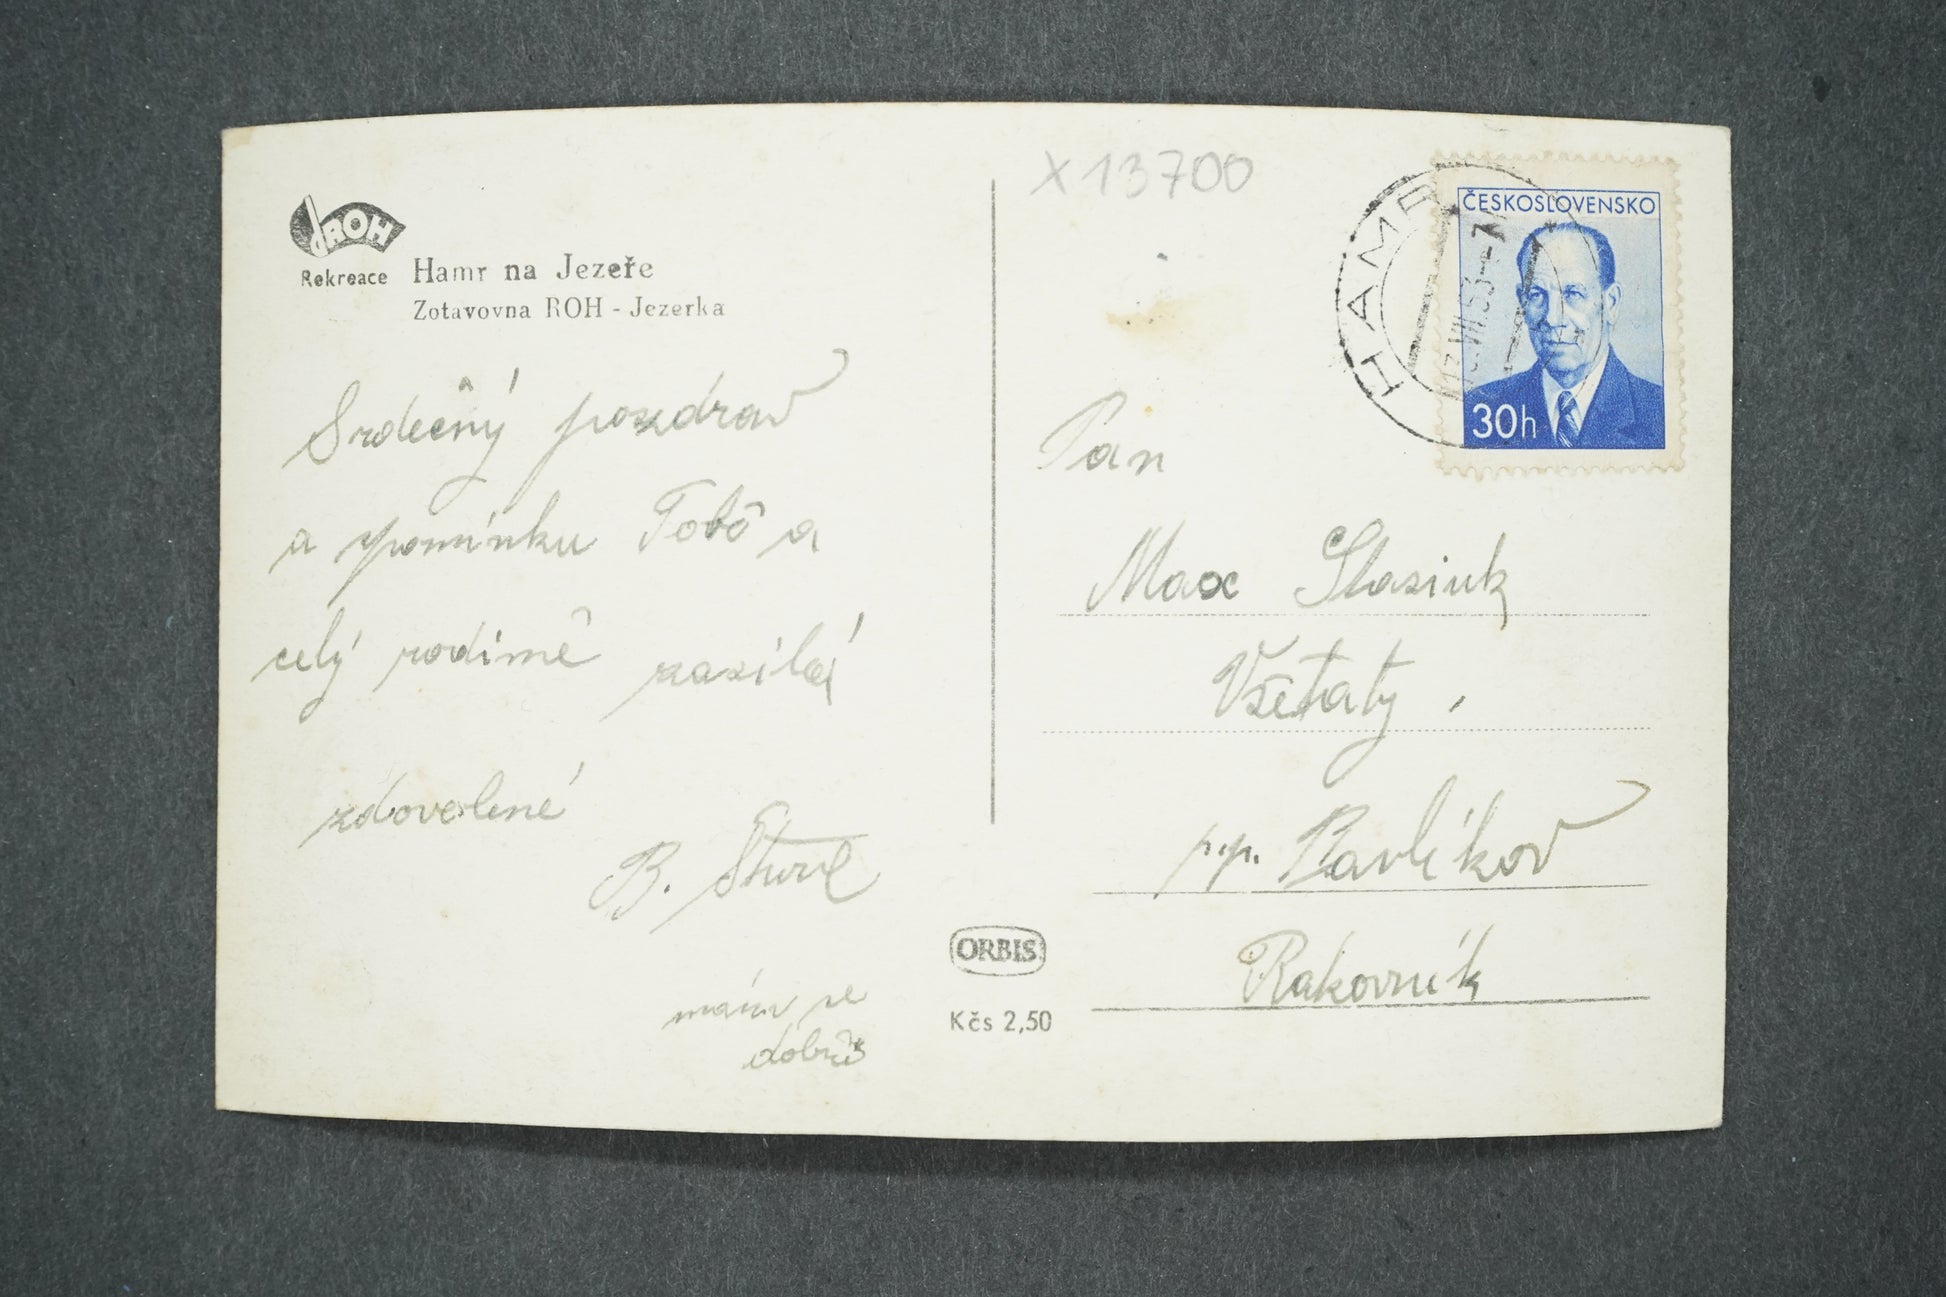 ROH
Rekreace
Hamr na Jezeře
Zotavovna ROH - Jezerka
Srdečný pozdrav
a vpomínku Tobě a
celý rodině zasílá
zdovolené
B.
mám se
dobře
X 13700
HAMR
13.VII.53--7
ČESKOSLOVENSKO
30h
Pan
Max
Všetaty,
p.p. Pavlíkov
Rakovník
ORBIS
Kčs 2,50